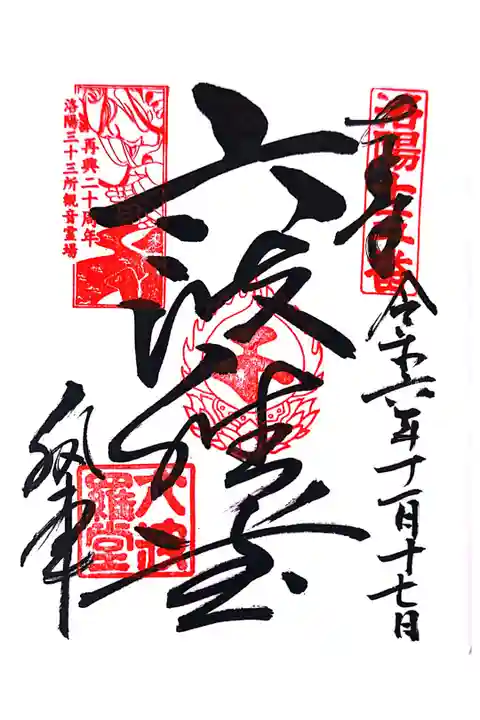 令和六年十一月十七日
六波羅堂
再興二十周年
洛陽三十三所観音霊場
六波
羅堂